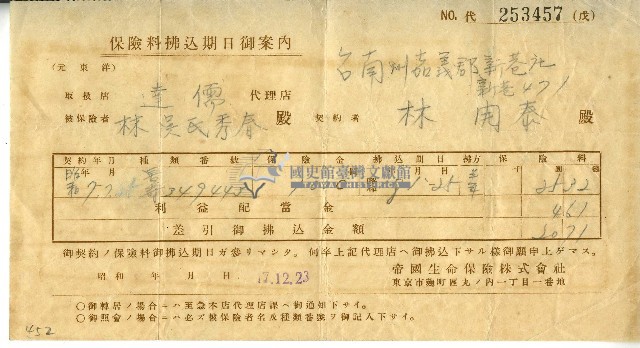 NO. 代 253457 (戊)
保險料拂込期日御案內
(元東洋)
台南州嘉義郡新巷庄
新巷471
取扱店 達儒 代理店
被保險者 林吳氏秀春 殿 契約者 林開泰 殿
契約年月 種類番號 保險金 拂込期日 拂方 保險料
年 月 月 日
昭和 7.7.25 349443 25 2532
利益配當金 461
差引御拂込金額 2071
國史館臺灣文獻館
TAIWAN HISTORICA
御契約ノ保險料御拂込期日ガ參リマシタ。何卒上記代理店ヘ御拂込下サル樣御願申上ゲマス。
昭和 年 月 日 17.12.23
帝國生命保險株式會社
東京市麹町區丸ノ內一丁目一番地
○御轉居ノ場合ニハ至急本店代理店課ヘ御通知下サイ。
○御照會ノ場合ニハ必ズ被保險者名及種類番號ヲ御記入下サイ。
452